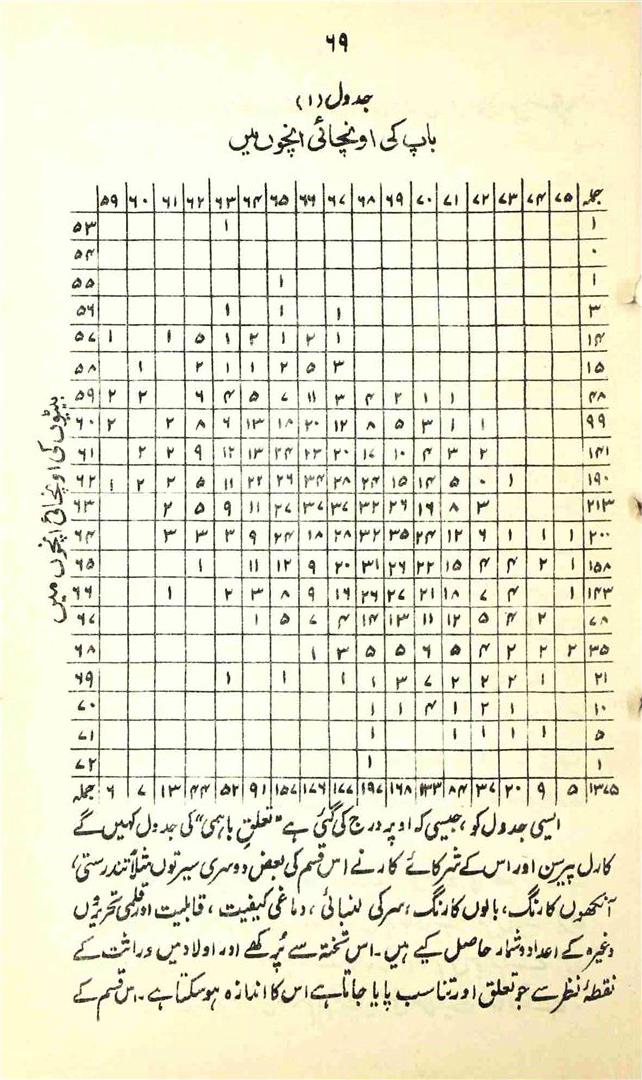 ۶۹
جدول (۱)
باپ کی اونچائی انچوں میں
بیٹوں کی اونچائی انچوں میں
۵۹ ۶۰ ۶۱ ۶۲ ۶۳ ۶۴ ۶۵ ۶۶ ۶۷ ۶۸ ۶۹ ۷۰ ۷۱ ۷۲ ۷۳ ۷۴ ۷۵ جملہ
۵۳ ۱ ۱
۵۴ ۰
۵۵ ۱ ۱
۵۶ ۱ ۱ ۱ ۳
۵۷ ۱ ۱ ۵ ۱ ۲ ۱ ۲ ۱ ۱۴
۵۸ ۱ ۲ ۱ ۱ ۲ ۵ ۳ ۱۵
۵۹ ۲ ۲ ۶ ۴ ۵ ۷ ۱۱ ۳ ۴ ۲ ۱ ۱ ۴۸
۶۰ ۲ ۲ ۸ ۶ ۱۳ ۱۸ ۲۰ ۱۲ ۸ ۵ ۳ ۱ ۱ ۹۹
۶۱ ۲ ۲ ۹ ۱۲ ۱۳ ۲۴ ۲۳ ۲۰ ۱۷ ۱۰ ۴ ۳ ۲ ۱۴۱
۶۲ ۱ ۲ ۲ ۵ ۱۱ ۲۲ ۲۶ ۳۴ ۲۸ ۲۴ ۱۵ ۱۴ ۵ ۰ ۱ ۱۹۰
۶۳ ۲ ۵ ۹ ۱۱ ۲۷ ۳۷ ۳۷ ۳۲ ۲۶ ۱۶ ۸ ۳ ۲۱۳
۶۴ ۳ ۳ ۳ ۹ ۲۴ ۱۸ ۲۸ ۳۲ ۳۵ ۲۴ ۱۲ ۶ ۱ ۱ ۱ ۲۰۰
۶۵ ۱ ۱۱ ۱۲ ۹ ۲۰ ۳۱ ۲۶ ۲۲ ۱۵ ۴ ۴ ۲ ۱ ۱۵۸
۶۶ ۱ ۲ ۳ ۸ ۹ ۱۶ ۲۶ ۲۷ ۲۱ ۱۸ ۷ ۴ ۱ ۱۴۳
۶۷ ۱ ۵ ۷ ۴ ۱۴ ۱۳ ۱۱ ۱۲ ۵ ۴ ۲ ۷۸
۶۸ ۱ ۳ ۵ ۵ ۶ ۵ ۴ ۲ ۲ ۲ ۳۵
۶۹ ۱ ۱ ۱ ۱ ۳ ۷ ۲ ۲ ۲ ۱ ۲۱
۷۰ ۱ ۱ ۴ ۱ ۲ ۱ ۱۰
۷۱ ۱ ۱ ۱ ۱ ۱ ۵
۷۲ ۱ ۱
جملہ ۶ ۷ ۱۳ ۴۴ ۵۲ ۹۱ ۱۵۷ ۱۷۶ ۱۷۷ ۱۹۷ ۱۶۸ ۱۳۳ ۸۴ ۳۷ ۲۰ ۹ ۵ ۱۳۷۵
ایسی جدول کو، جیسی کہ اوپر درج کی گئی ہے "تعلق باہمی" کی جدول کہیں گے
کارل پیرسن اور اس کے شرکائے کار نے اس قسم کی بعض دوسری سیرتوں مثلاً تندرستی،
آنکھوں کا رنگ، بالوں کا رنگ، سر کی لنبائی، دماغی کیفیت، قابلیت اور قلمی تحریروں
وغیرہ کے اعداد و شمار حاصل کیے ہیں۔ اس تختہ سے پُرکھے اور اولاد میں وراثت کے
نقطۂ نظر سے جو تعلق اور تناسب پایا جاتا ہے اس کا اندازہ ہو سکتا ہے۔ اس قسم کے